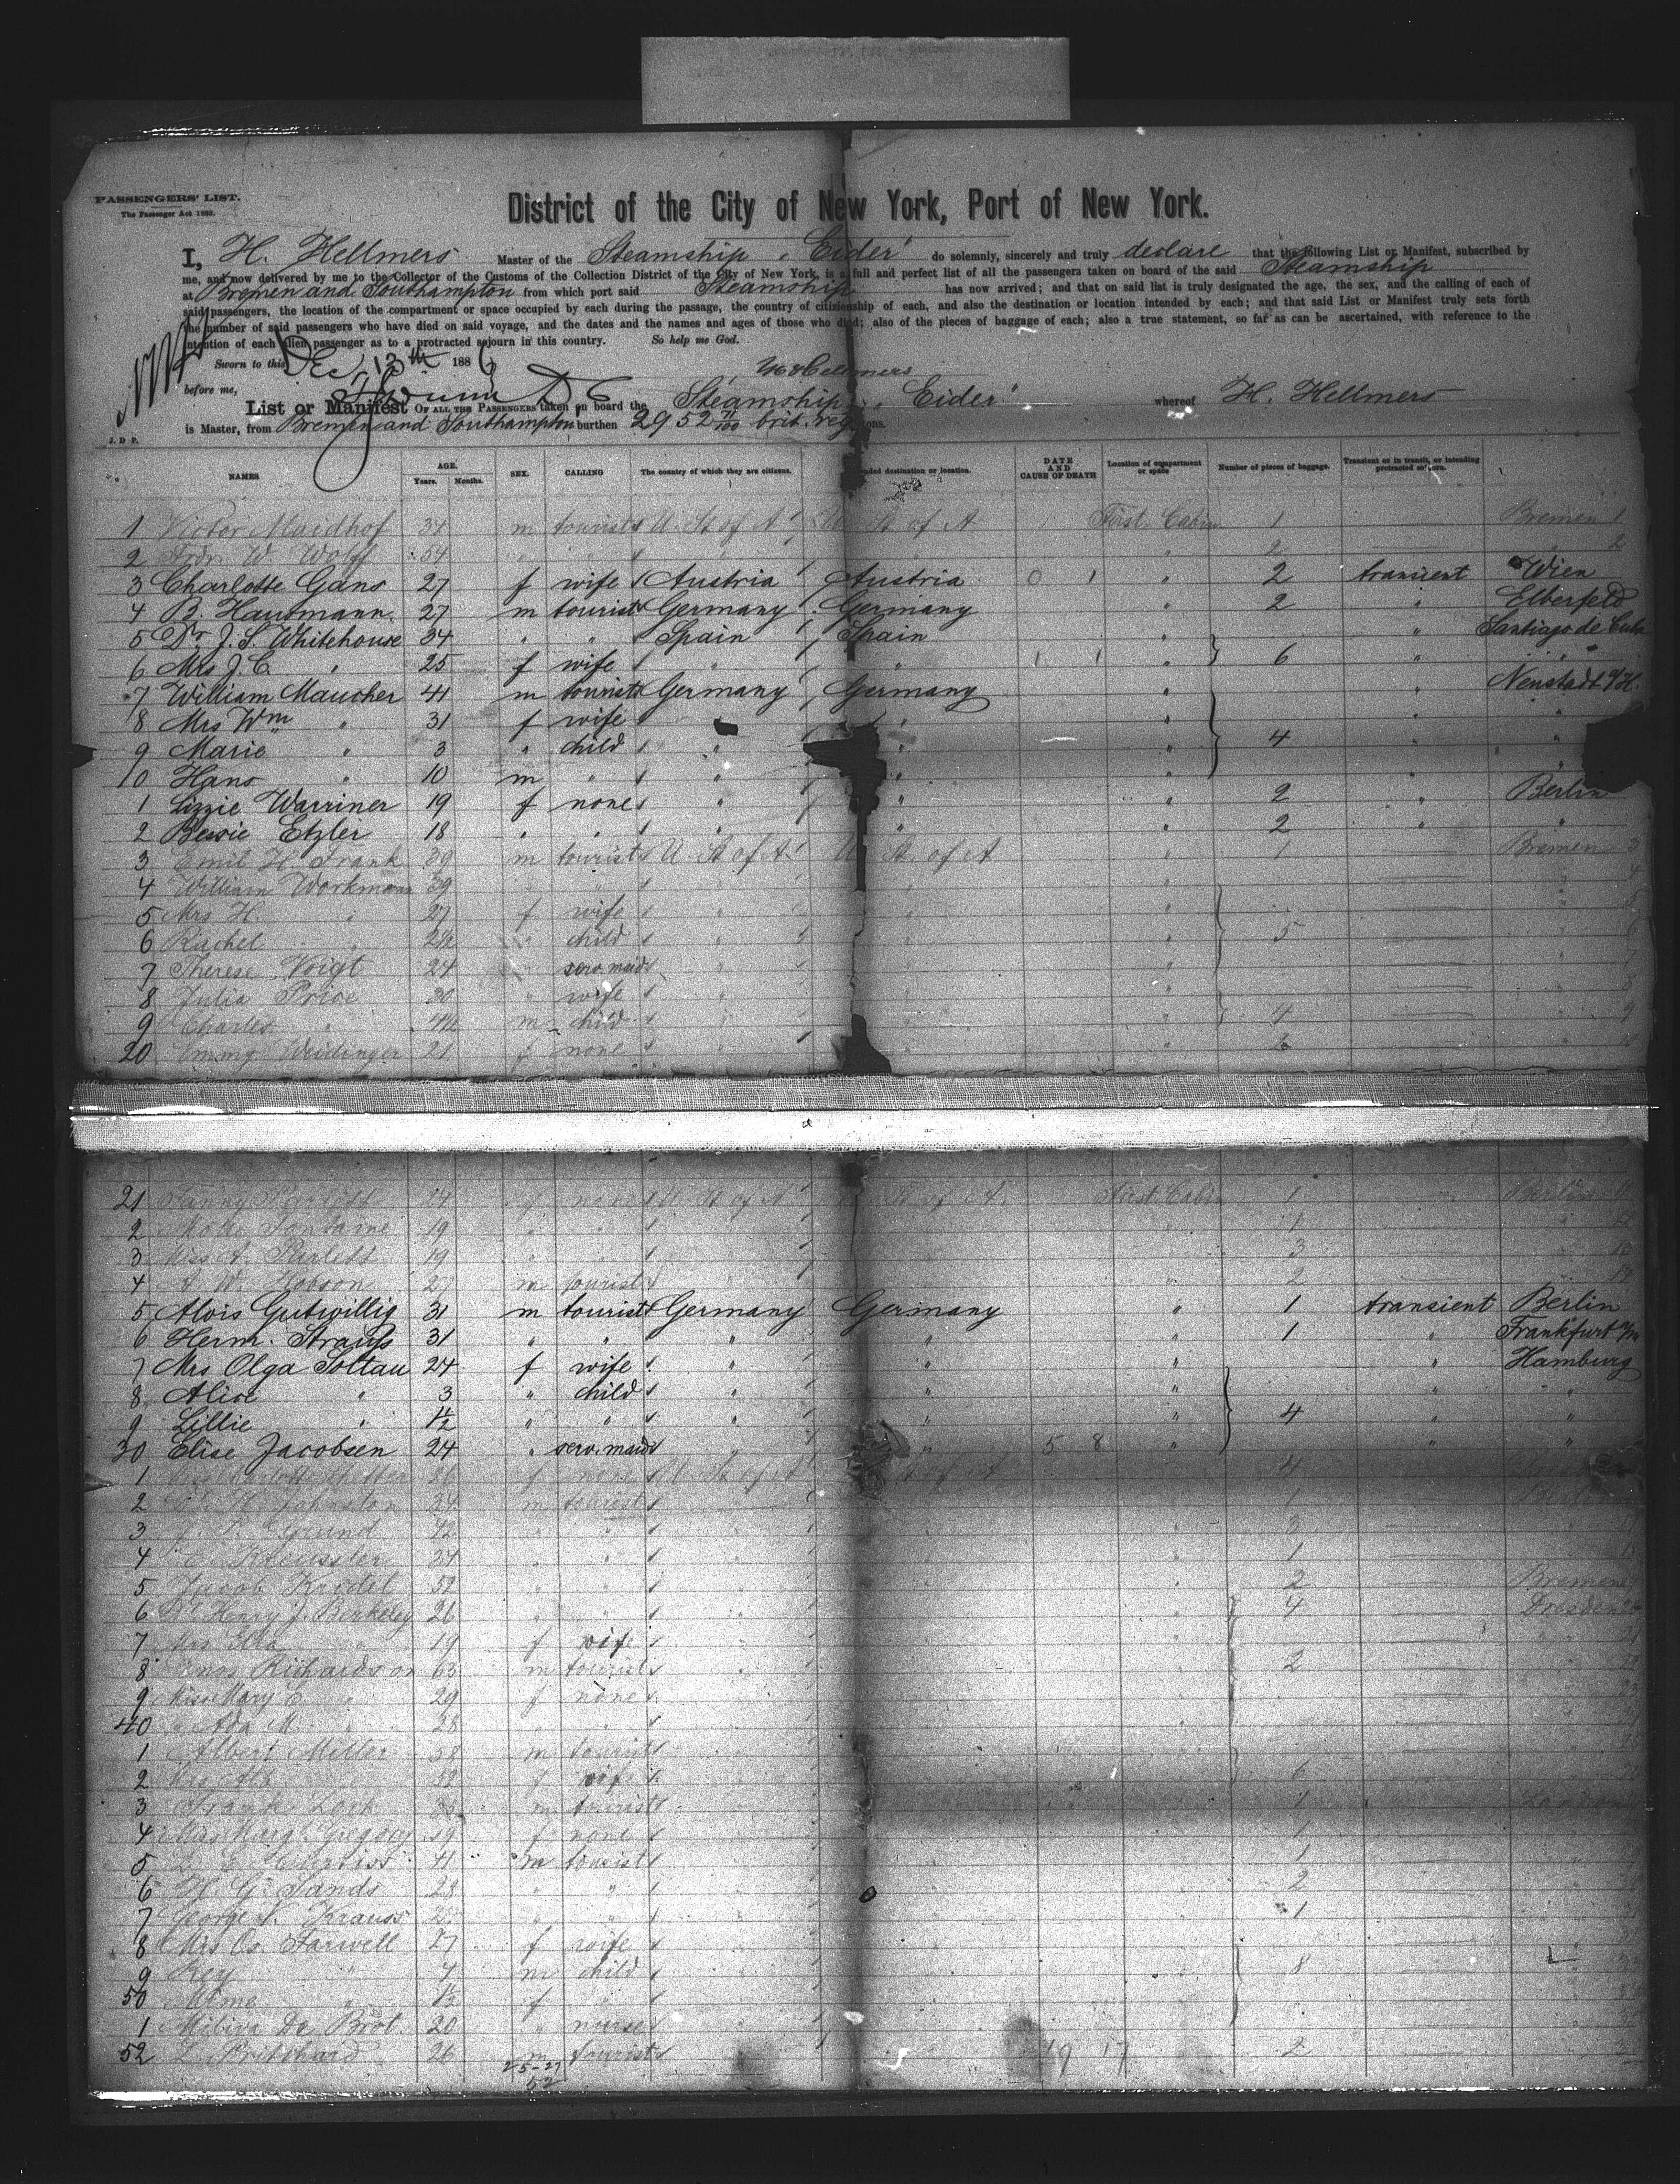 PASSENGERS' LIST.
The Passenger Act 1882.
District of the City of New York, Port of New York.
I, H. Hellmers Master of the Steamship "Eider" do solemnly, sincerely and truly declare that the following List or Manifest, subscribed by
me, and now delivered by me to the Collector of the Customs of the Collection District of the City of New York, is a full and perfect list of all the passengers taken on board of the said Steamship
at Bremen and Southampton from which port said Steamship has now arrived; and that on said list is truly designated the age, the sex, and the calling of each of
said passengers, the location of the compartment or space occupied by each during the passage, the country of citizenship of each, and also the destination or location intended by each; and that said List or Manifest truly sets forth
the number of said passengers who have died on said voyage, and the dates and the names and ages of those who died; also of the pieces of baggage of each; also a true statement, so far as can be ascertained, with reference to the
intention of each alien passenger as to a protracted sojourn in this country. So help me God.
Sworn to this Dec 13th 1886
before me, H Hellmers
List or Manifest OF ALL THE PASSENGERS taken on board the Steamship "Eider" whereof H. Hellmers
is Master, from Bremen and Southampton burthen 2952 71/100 brit. reg. tons.
J. D. P.
NAMES AGE. Years. Months. SEX. CALLING The country of which they are citizens. Intended destination or location. DATE AND CAUSE OF DEATH Location of compartment or space Number of pieces of baggage. Transient or in transit, or intending protracted sojourn.
1 Victor Maidhof 31 m tourist U. St of A U. St of A First Cabin 1 Bremen 1
2 Frdr. W. Wolff 54 " " " " " 2 " 2
3 Charlotte Gans 27 f wife Austria Austria " 2 transient Wien
4 B. Hautmann 27 m tourist Germany Germany " 2 " Elberfeld
5 Dr J. S. Whitehouse 34 " " Spain Spain " " Santiago de Cuba
6 Mrs J. C. " 25 f wife " " " 6 " "
7 William Maucher 41 m tourist Germany Germany " " Neustadt a/H.
8 Mrs Wm " 31 f wife " " " " "
9 Marie " 3 " child " " " 4 " "
10 Hans " 10 m " " " " " "
1 Lizzie Warriner 19 f none " " " 2 " Berlin
2 Bessie Etzler 18 " " " " " 2 " "
3 Emil H. Frank 39 m tourist U. St of A U. St. of A " 1 Bremen 3
4 William Workman 39 " " " " " " 4
5 Mrs H. " 27 f wife " " " " 5
6 Rachel " 2½ " child " " " 5 " 6
7 Therese Voigt 24 " serv. maid " " " " 7
8 Julia Price 30 " wife " " " " 8
9 Charles " 4½ m child " " " 4 " 9
20 Emmy Weidinger 21 f none " " " 2 " 10
21 Fanny 24 f none U. St of A U. St of A. First Cabin 1 Berlin
2 Fontaine 19 " " " " " 1 "
3 Miss A. 19 " " " " " 3 "
4 A. W. Hobson 27 m tourist " " " 2 "
5 Alois Gutwillig 31 m tourist Germany Germany " 1 transient Berlin
6 Herm. Strauss 31 " " " " " 1 " Frankfurt a/M
7 Mrs Olga Soltau 24 f wife " " " " Hamburg
8 Alice " 3 " child " " " " "
9 Lillie " 1½ " " " " " 4 " "
30 Elise Jacobsen 24 " serv. maid " " 5 8 " " "
1 Miss Charlotte 26 f none U. St of A U. St of A 4
2 Johnston 34 m tourist " " " 1
3 Grund 42 " " " " " 3
4 C. Kreussler 34 " " " " " 1
5 Jacob Kridel 52 " " " " " 2 Bremen
6 Dr Henry J. Berkeley 26 " " " " " 4 Dresden
7 Mrs Ella " 19 f wife "
8 Enos Richardson 63 m tourist " 2
9 Miss Mary E. " 29 f none "
40 " Ada M. " 28 " " "
1 Albert Miller 58 m tourist
2 Mrs Alb. " 52 f wife 6
3 Frank Lock m tourist 1 London
4 Miss Marg. Gregory 19 f none 1
5 Curtiss 41 m tourist 1
6 H. G. Sands 28 " " 2
7 George N. Krauss " " 1
8 Mrs Os. Farwell 27 f wife
9 Rey " 4 m child 8
50 f "
1 20 " nurse
52 L. Pritchard 26 m tourist 19 17 2
25-27
52